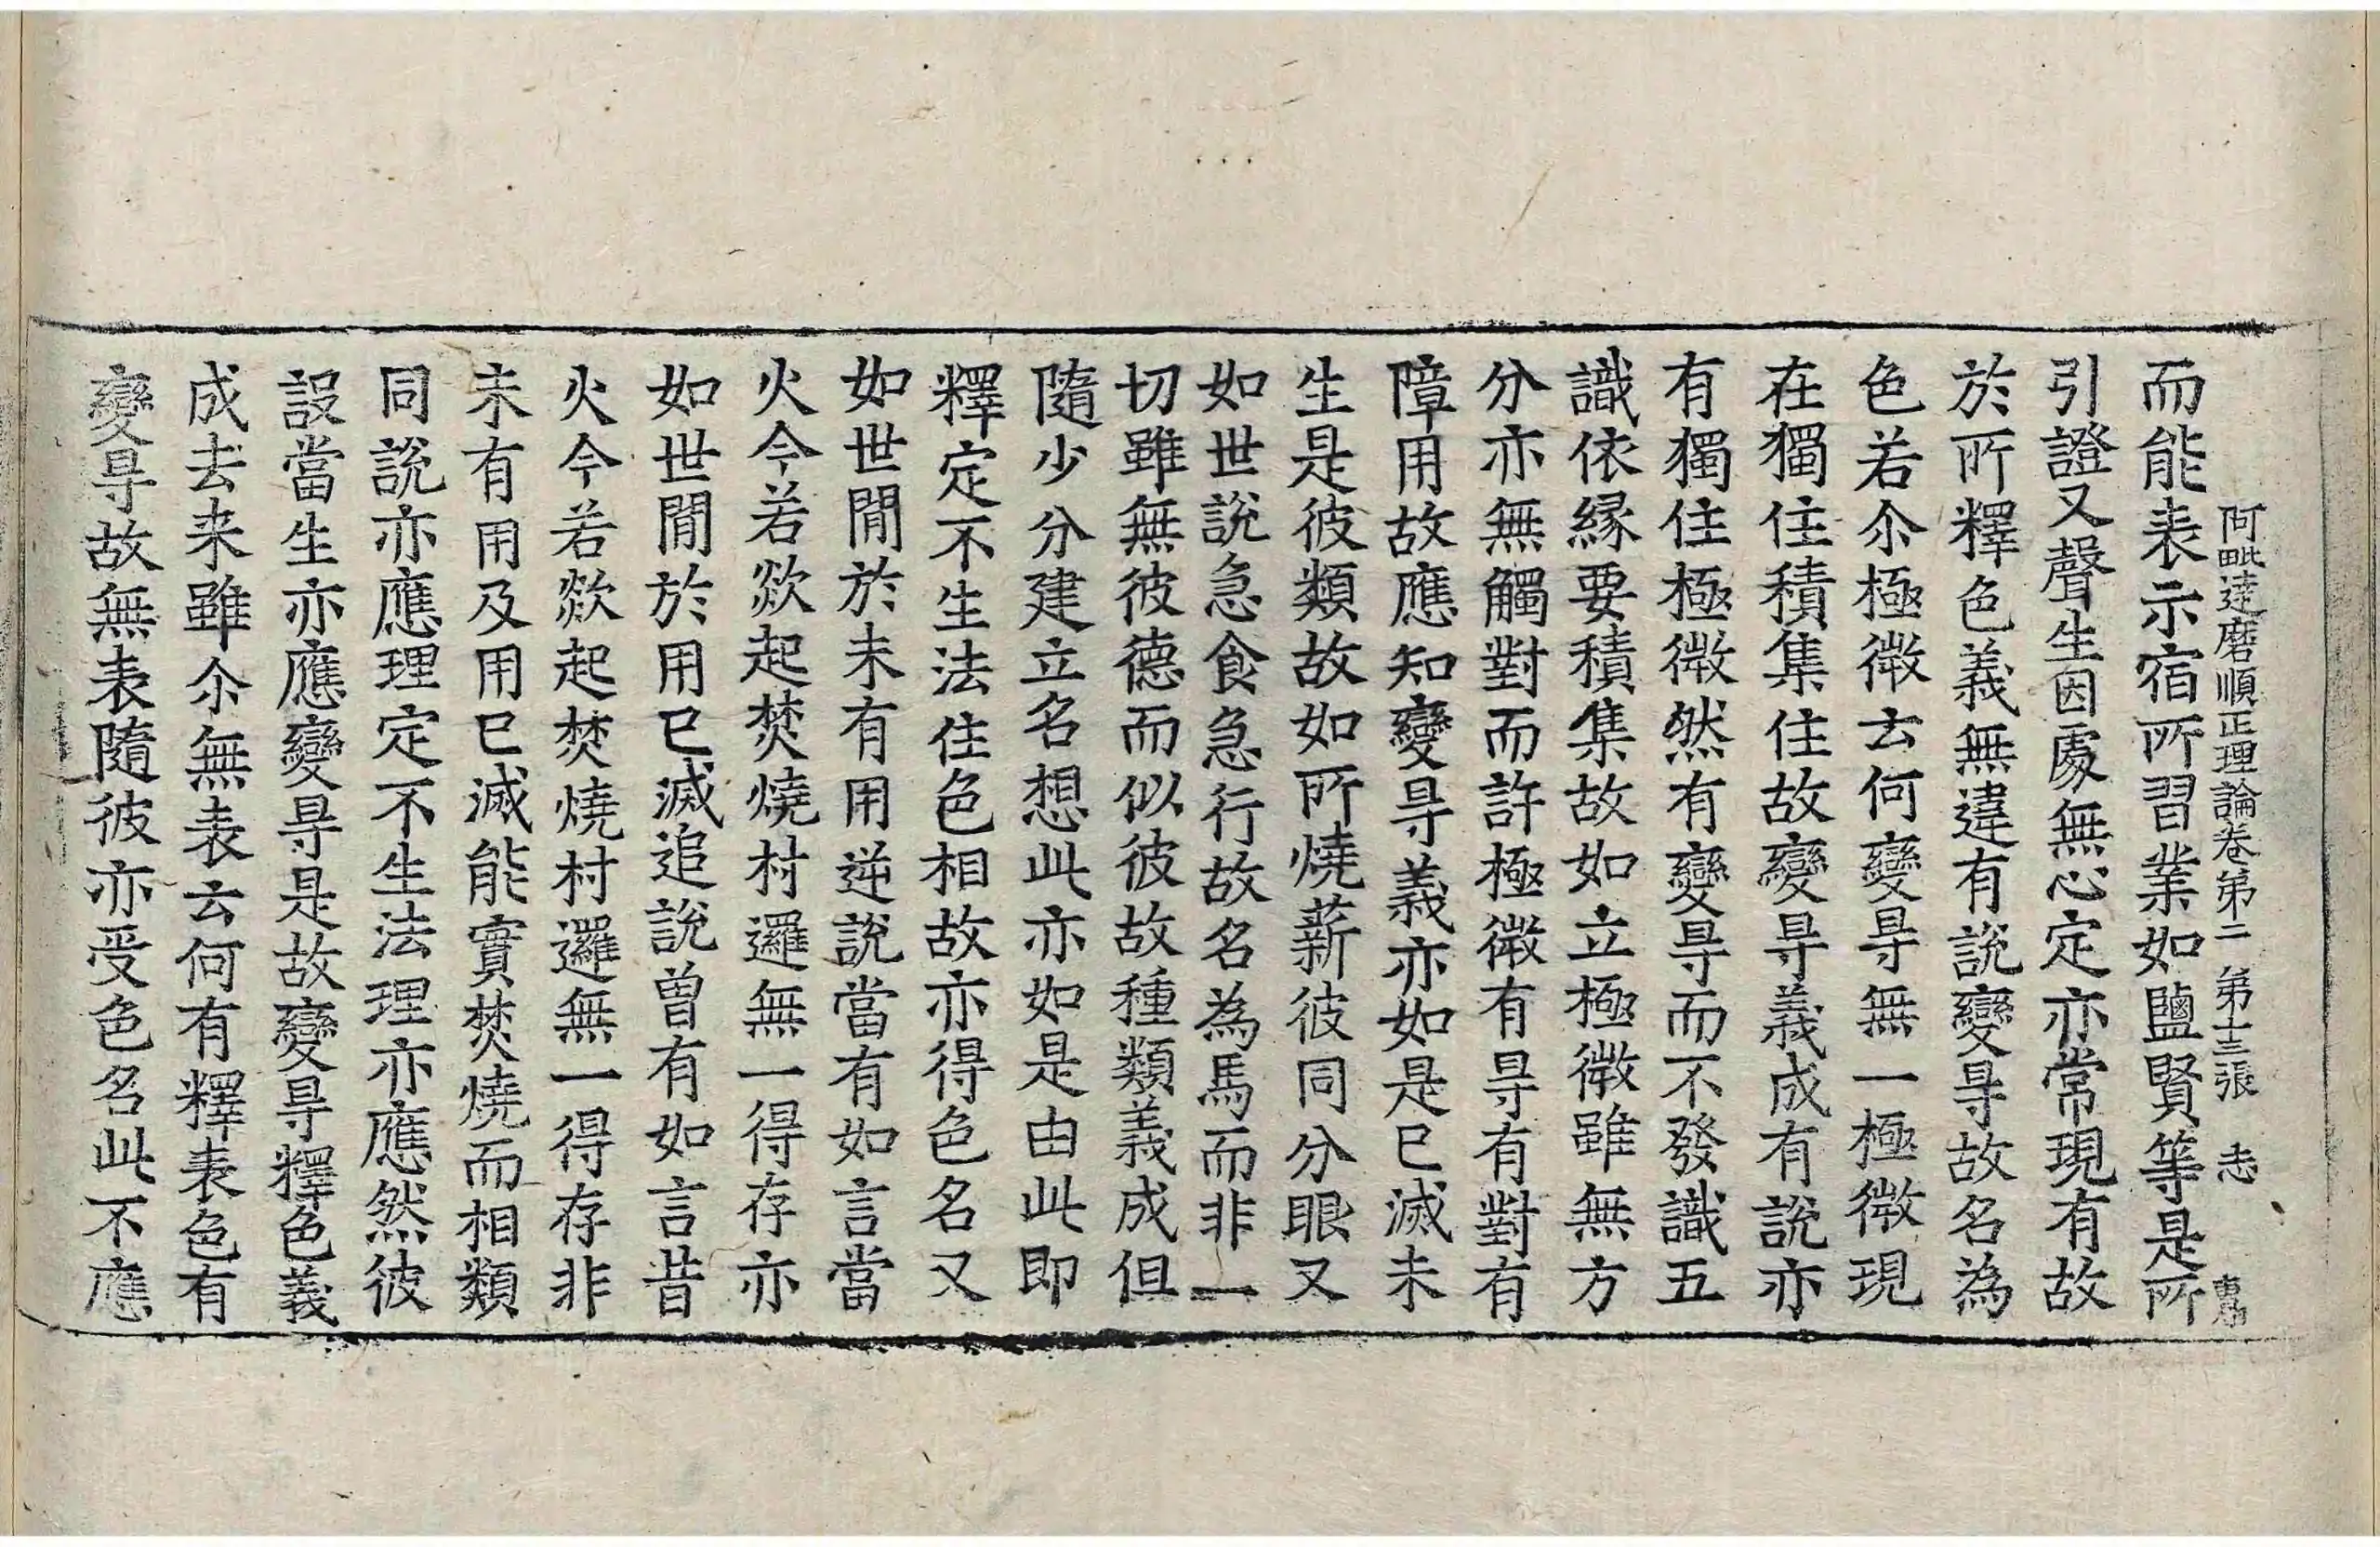 阿毗達磨順正理論卷第二 第十三張 志
而能表示宿所習業如鹽賢等是所
引證又聲生因處無心定亦常現有故
於所釋色義無違有說變㝵故名為
色若尒極微云何變㝵無一極微現
在獨住積集住故變㝵義成有說亦
有獨住極微然有變㝵而不發識五
識依緣要積集故如立極微雖無方
分亦無觸對而許極微有㝵有對有
障用故應知變㝵義亦如是已滅未
生是彼類故如所燒薪彼同分眼又
如世說急食急行故名為馬而非一
切雖無彼德而似彼故種類義成但
隨少分建立名想此亦如是由此即
釋定不生法住色相故亦得色名又
如世間於未有用逆說當有如言當
火今若欻起焚燒村邏無一得存亦
如世間於用已滅追說曾有如言昔
火今若欻起焚燒村邏無一得存非
未有用及用已滅能實焚燒而相類
同說亦應理定不生法理亦應然彼
設當生亦應變㝵是故變㝵釋色義
成去来雖尒無表云何有釋表色有
變㝵故無表隨彼亦受色名此不應